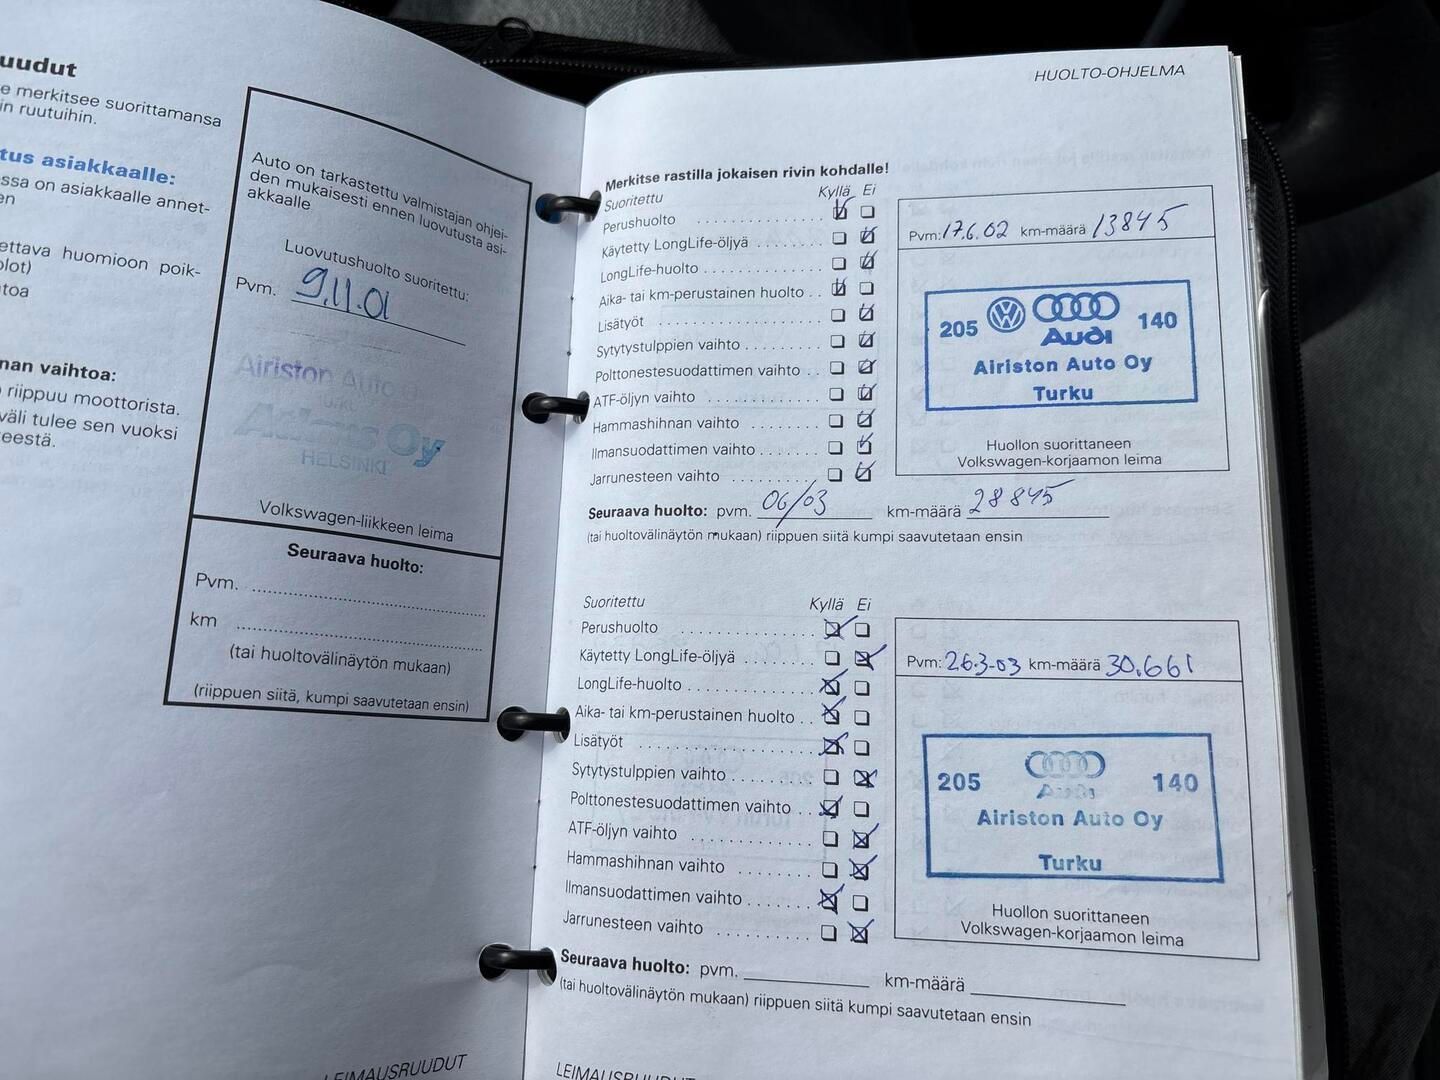 uudut
e merkitsee suorittamansa
in ruutuihin.
tus asiakkaalle:
ssa on asiakkaalle annet-
en
ettava huomioon poik-
olot)
toa
nan vaihtoa:
riippuu moottorista.
väli tulee sen vuoksi
eestä.
Auto on tarkastettu valmistajan ohjei-
den mukaisesti ennen luovutusta asi-
akkaalle
Luovutushuolto suoritettu:
Pvm. 9.11.01
Airiston Auto
Oy
HELSINKI
Volkswagen-liikkeen leima
Seuraava huolto:
Pvm.
km
(tai huoltovälinäytön mukaan)
(riippuen siitä, kumpi saavutetaan ensin)
LEIMAUSRUUDUT
HUOLTO-OHJELMA
Merkitse rastilla jokaisen rivin kohdalle!
Suoritettu Kyllä Ei
Perushuolto
Käytetty LongLife-öljyä
LongLife-huolto
Aika- tai km-perustainen huolto
Lisätyöt
Sytytystulppien vaihto
Polttonestesuodattimen vaihto
ATF-öljyn vaihto
Hammashihnan vaihto
Ilmansuodattimen vaihto
Jarrunesteen vaihto
Pvm: 17.6.02 km-määrä 13845
205 Audi 140
Airiston Auto Oy
Turku
Huollon suorittaneen
Volkswagen-korjaamon leima
Seuraava huolto: pvm. 06/03 km-määrä 28845
(tai huoltovälinäytön mukaan) riippuen siitä kumpi saavutetaan ensin
Suoritettu Kyllä Ei
Perushuolto
Käytetty LongLife-öljyä
LongLife-huolto
Aika- tai km-perustainen huolto
Lisätyöt
Sytytystulppien vaihto
Polttonestesuodattimen vaihto
ATF-öljyn vaihto
Hammashihnan vaihto
Ilmansuodattimen vaihto
Jarrunesteen vaihto
Pvm: 26.3-03 km-määrä 30.661
205 Audi 140
Airiston Auto Oy
Turku
Huollon suorittaneen
Volkswagen-korjaamon leima
Seuraava huolto: pvm. km-määrä
(tai huoltovälinäytön mukaan) riippuen siitä kumpi saavutetaan ensin
LEIMAUSRUUDUT